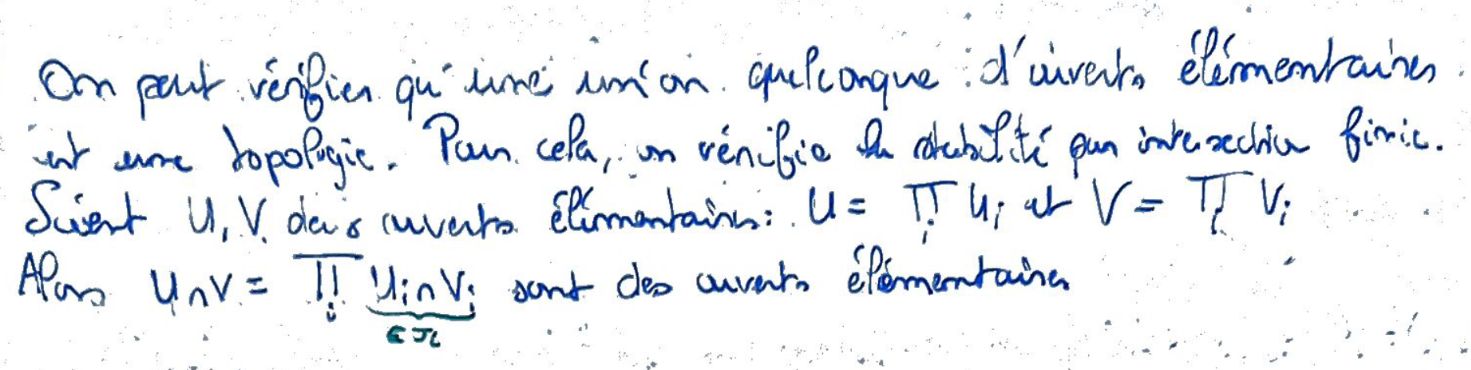 On peut vérifier qu'une union quelconque d'ouverts élémentaires
est une topologie. Pour cela, on vérifie la stabilité par intersection finie.
Soient U, V deux ouverts élémentaires : U = ∏_i U_i et V = ∏_i V_i
Alors U∩V = ∏_i U_i∩V_i sont des ouverts élémentaires
∈ τ_i